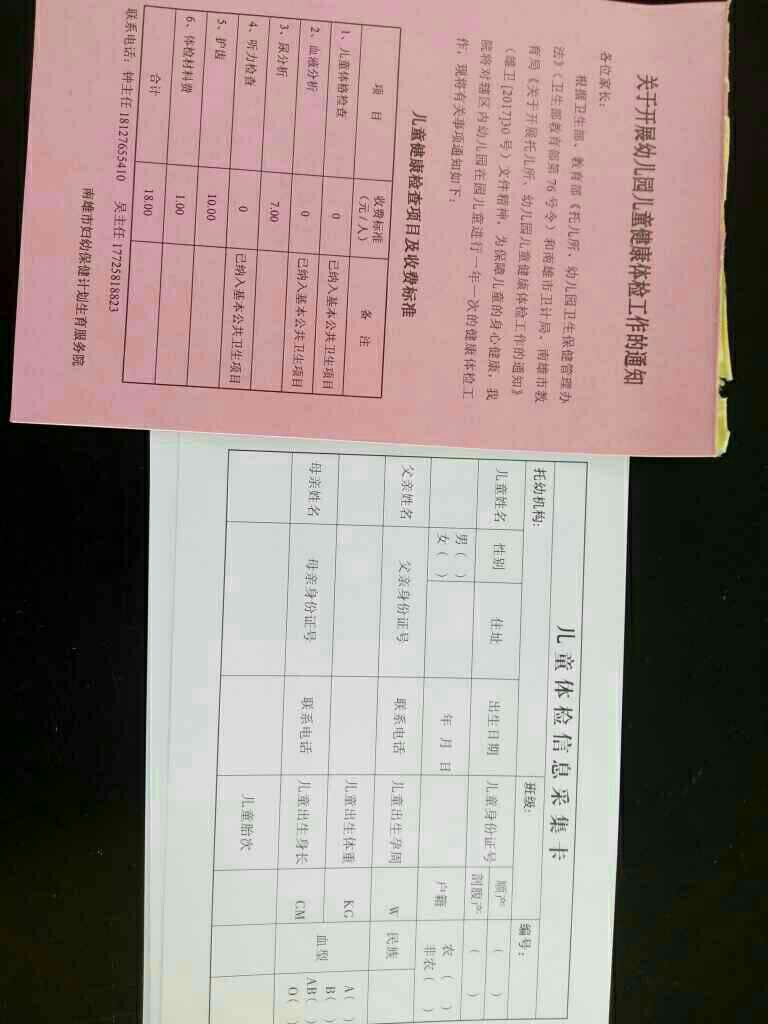 关于开展幼儿园儿童健康体检工作的通知
各位家长：
根据卫生部、教育部《托儿所、幼儿园卫生保健管理办
法》（卫生部教育部第 76 号令）和南雄市卫计局、南雄市教
育局《关于开展托儿所、幼儿园儿童健康体检工作的通知》
（雄卫 [2017]30 号）文件精神，为保障儿童的身心健康，我
院将对辖区内幼儿园在园儿童进行一年一次的健康体检工
作，现将有关事项通知如下：
儿童健康检查项目及收费标准
项 目 收费标准（元/人） 备 注
1、儿童体格检查 0 已纳入基本公共卫生项目
2、血液分析 0 已纳入基本公共卫生项目
3、尿分析 7.00
4、听力检查 0 已纳入基本公共卫生项目
5、护齿 10.00
6、体检材料费 1.00
合计 18.00
联系电话：钟主任 18127655410 吴主任 17725818823
南雄市妇幼保健计划生育服务院
儿童体检信息采集卡
托幼机构： 班级： 编号：
儿童姓名 性别 住址 出生日期 儿童身份证号 顺产 （ ）
剖腹产 （ ）
男（ ）
女（ ）
年 月 日 户籍 农 （ ）
非农（ ）
父亲姓名 父亲身份证号 联系电话 儿童出生孕周 W 民族
儿童出生体重 KG
母亲姓名 母亲身份证号 联系电话 儿童出生身长 CM 血型 A（ ）
B（ ）
AB（ ）
O（ ）
儿童胎次